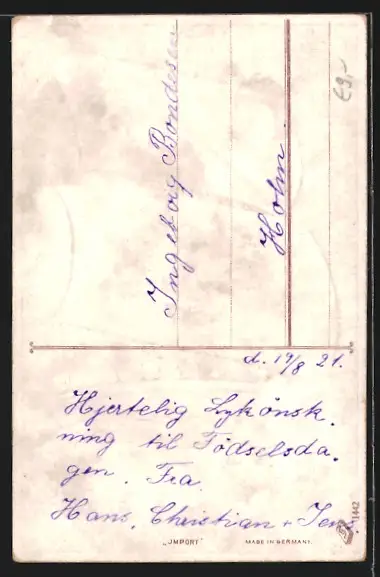 Ingeborg Bondesen
Holm.
69,-
d. 19/8 21.
Hjertelig Lykönsk.
ning til Födselsda.
gen. Fra.
Hans, Christian + Jens.
„IMPORT"
MADE IN GERMANY.
1442